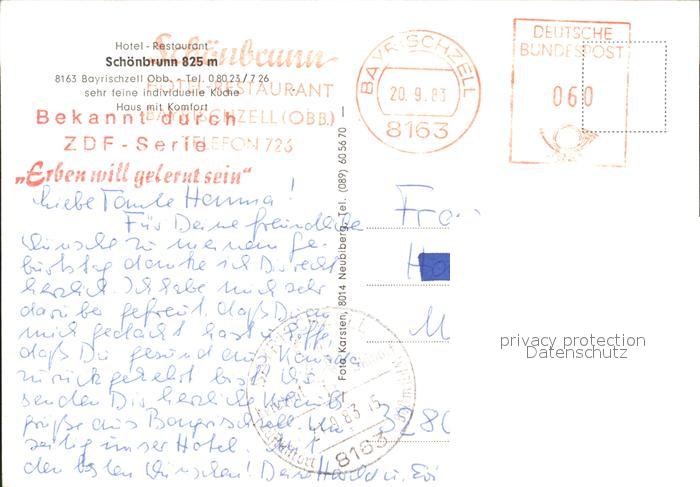 Hotel - Restaurant
Schönbrunn 825 m
8163 Bayrischzell Obb. - Tel. 08023/726
sehr feine individuelle Küche
Haus mit Komfort
Schönbrunn
HOTEL-RESTAURANT
BAYRISCHZELL (OBB.)
TELEFON 726
Bekannt durch
ZDF - Serie
„Erben will gelernt sein"
BAYRISCHZELL
20. 9. 83
8163
DEUTSCHE
BUNDESPOST
060
Liebe Tante Hanna!
Für Deine freundliche
Wünsche zu meinem Ge-
burtstag danke ich Dir recht
herzlich. Ich habe mich sehr
darüber gefreut, daß Du an
mich gedacht hast u. hoffe,
daß Du gesund aus Kanada
zurück gekehrt bist! Wir
senden Dir herzliche Urlaubs
grüße aus Bayrischzell. Um
seitig unser Hotel. Mit
den besten Wünschen! Dein Harald u.
Foto Karsten, 8014 Neubiberg, Tel. (089) 605670 —
Fra
Ho
M
3280
83-15
8163
privacy protection
Datenschutz